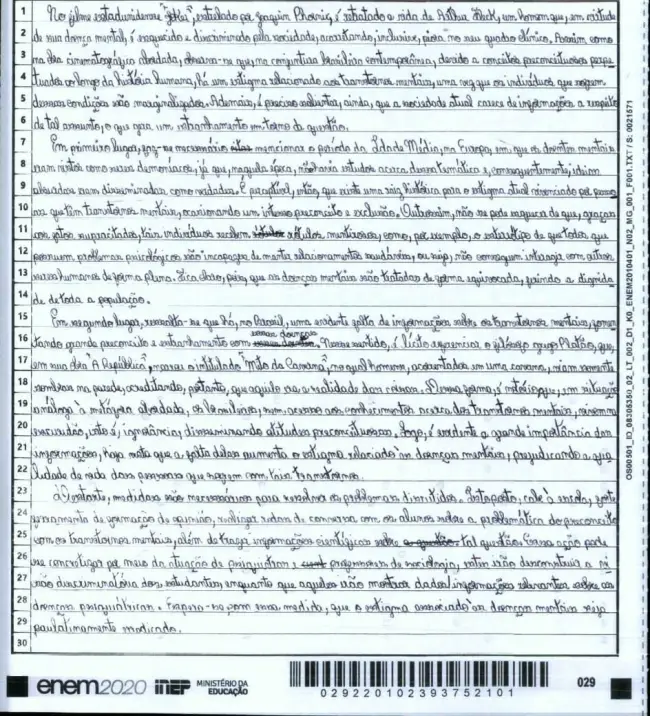 No filme estadunidense "Joker", estrelado por Joaquin Phoenix, é retratado a vida de Arthur Fleck, um homem que, em virtude
de sua doença mental, é esquecido e discriminado pela sociedade, acarretando, inclusive, piora no seu quadro clínico. Assim como
na obra cinematográfica abordada, observa-se que, na conjuntura brasileira contemporânea, devido a conceitos preconceituosos perpe-
tuados ao longo da história humana, há um estigma relacionado aos transtornos mentais, uma vez que os indivíduos que sofrem
dessas condições são marginalizados. Ademais, é preciso salientar, ainda, que a sociedade atual carece de informações a respeito
de tal assunto, o que gera um estranhamento em torno da questão.
Em primeiro lugar, faz-se necessário mencionar o período da Idade Média, na Europa, em que os doentes mentais
eram vistos como seres demoníacos, já que, naquela época, não havia estudos acerca dessa temática e, consequentemente, ideias
absurdas eram disseminadas como verdades. É perceptível, então, que existe uma raiz histórica para o estigma atual vivenciado por pesso-
as que têm transtornos mentais, ocasionando um intenso preconceito e exclusão. Outrossim, não se pode esquecer de que, graças
aos fatos supracitados, tais indivíduos recebem rótulos mentirosos, como, por exemplo, o estereótipo de que todos que
possuem problemas psicológicos são incapazes de manter relacionamentos saudáveis, ou seja, não conseguem interagir com outros
seres humanos de forma plena. Fica claro, pois, que as doenças mentais são tratadas de forma equivocada, ferindo a dignida-
de de toda a população.
Em segundo lugar, ressalta-se que há, no Brasil, uma evidente falta de informações sobre os transtornos mentais, fomen-
tando grande preconceito e estranhamento com essas doenças. Nesse sentido, é lícito referenciar o filósofo grego Platão, que,
em sua obra "A República", narrou o intitulado "Mito da Caverna", no qual homens, acorrentados em uma caverna, viam somente
sombras na parede, acreditando, portanto, que aquilo era a realidade das coisas. Dessa forma, é notório que, em situação
análoga à metáfora abordada, os brasileiros, sem acesso aos conhecimentos acerca dos transtornos mentais, vivem na
escuridão, isto é, ignorância, disseminando atitudes preconceituosas. Logo, é evidente a grande importância das
informações, haja vista que a falta delas aumenta o estigma relacionado às doenças mentais, prejudicando a qua-
lidade de vida das pessoas que sofrem com tais transtornos.
Destarte, medidas são necessárias para resolver os problemas discutidos. Isto posto, cabe à escola, forte
ferramenta de formação de opinião, realizar rodas de conversa com os alunos sobre a problemática do preconceito
com os transtornos mentais, além de trazer informações científicas sobre tal questão. Essa ação pode
se concretizar por meio da atuação de psiquiatras e professores de sociologia, estes irão desconstruir a vi-
são discriminatória dos estudantes, enquanto que aqueles irão mostrar dados/informações relevantes sobre as
doenças psiquiátricas. Espera-se, com essa medida, que o estigma associado às doenças mentais seja
paulatinamente erradicado.
OS00501_ID_08205350_02_LT_002_D1_K0_ENEM2010401_N02_MG_001_F001.TXT / S: 0021571
enem2020 inep MINISTÉRIO DA EDUCAÇÃO
029220102393752101
029